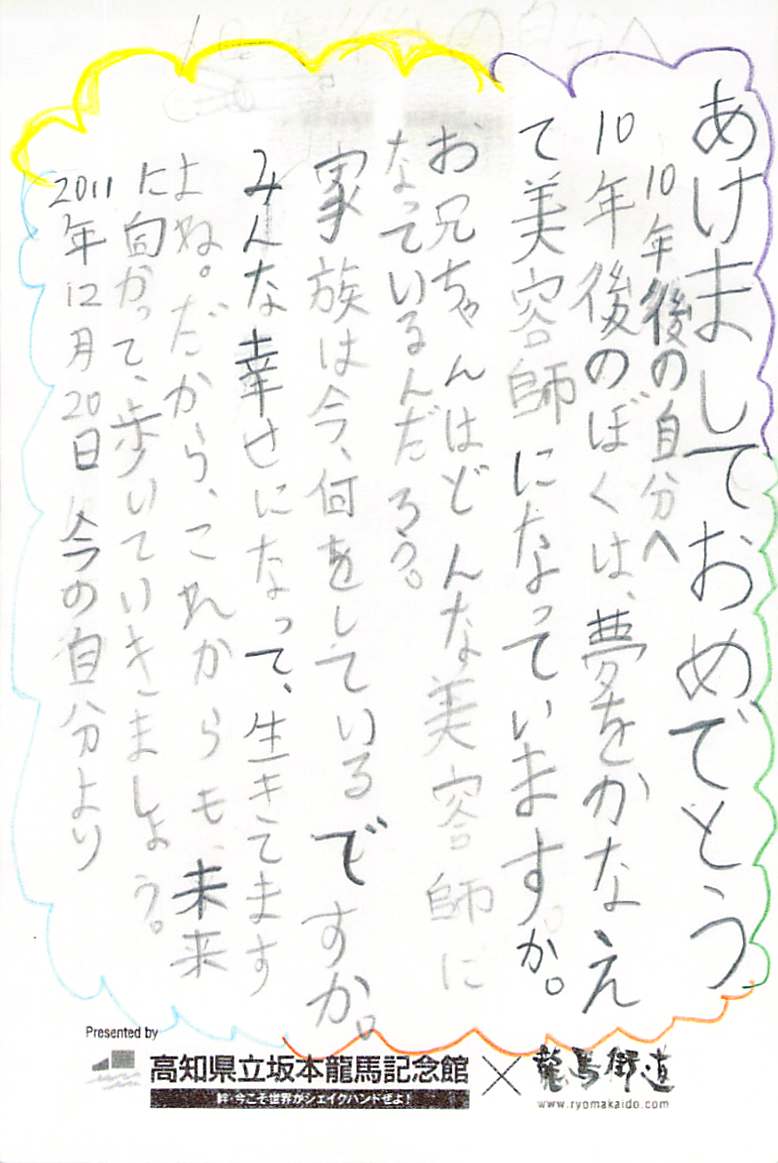 あけましておめでとう
10年後の自分へ
10年後のぼくは、夢をかなえ
て美容師になっていますか。
お兄ちゃんはどんな美容師に
なっているんだろう。
家族は今、何をしているですか。
みんな幸せになって、生きてます
よね。だから、これからも、未来
に向かって、歩いていきましょう。
2011年12月20日 今の自分より
Presented by
高知県立坂本龍馬記念館
絆・今こそ世界がシェイクハンドぜよ!
×
龍馬街道
www.ryomakaido.com